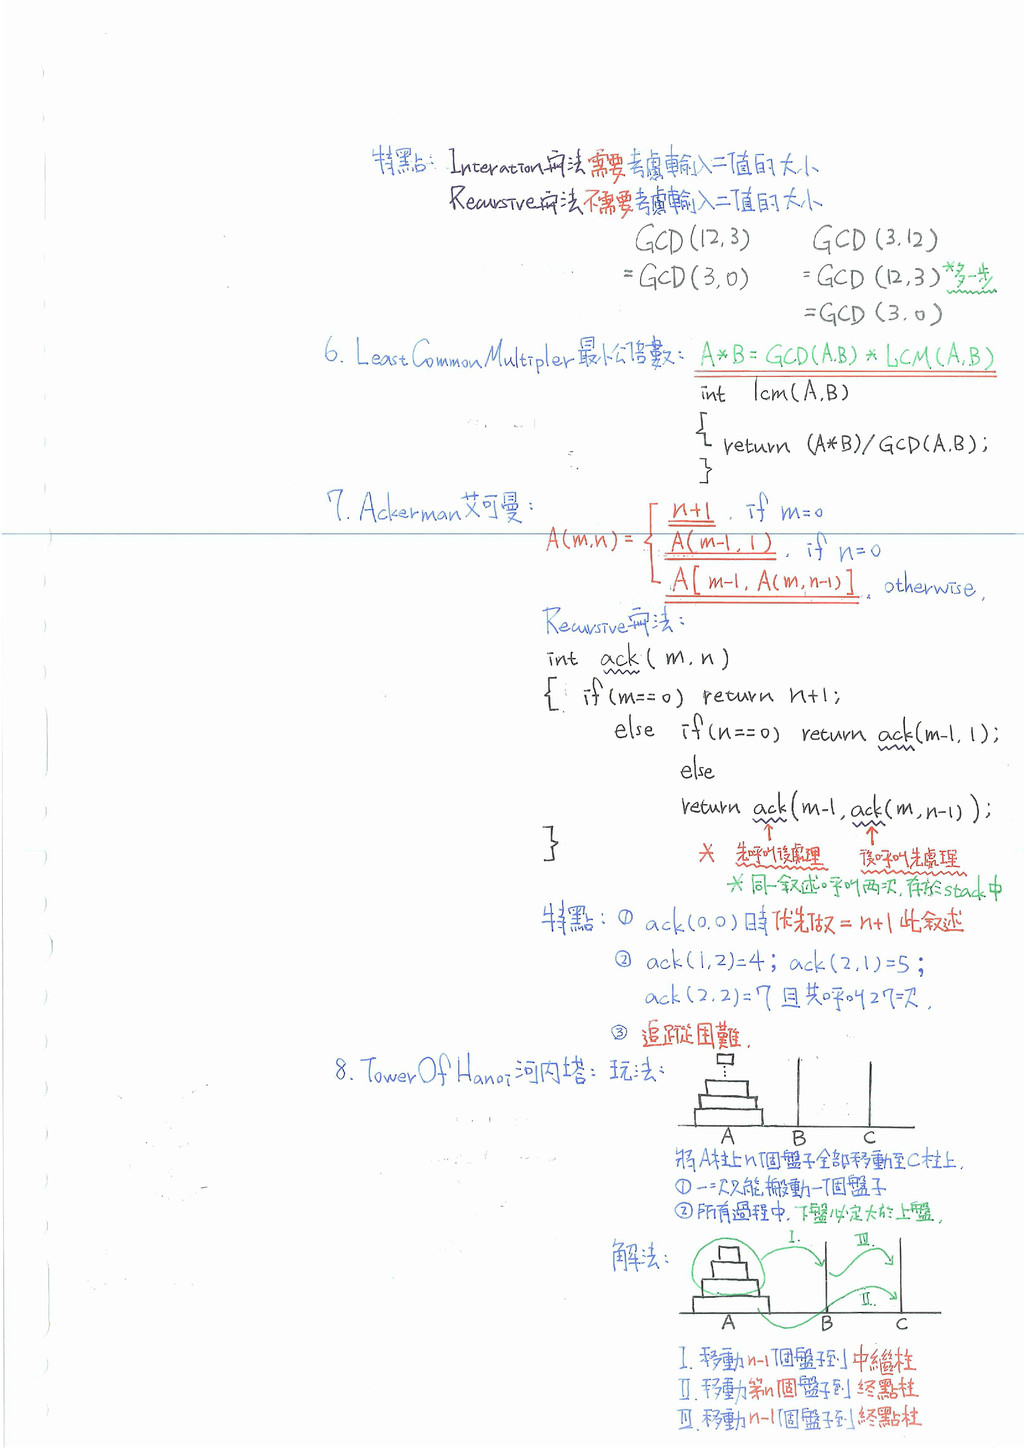 特點: Interation寫法需要考慮輸入二值的大小
Recursive寫法不需要考慮輸入二值的大小
GCD(12,3) GCD(3,12)
=GCD(3,0) =GCD(12,3)*多一步
=GCD(3,0)
6. Least Common Multipler最小公倍數: A*B=GCD(A,B)*LCM(A,B)
int lcm(A,B)
{
return (A*B)/GCD(A,B);
}
7. Ackerman艾可曼:
n+1, if m=0
A(m,n)= A(m-1,1), if n=0
A[m-1,A(m,n-1)], otherwise,
Recursive寫法:
int ack(m,n)
{ if(m==0) return n+1;
else if(n==0) return ack(m-1,1);
else
return ack(m-1,ack(m,n-1));
}
* 先呼叫後處理 後呼叫先處理
*同一敘述呼叫兩次,存於stack中
特點:① ack(0,0)時優先做=n+1此敘述
② ack(1,2)=4; ack(2,1)=5;
ack(2,2)=7且共呼叫27次.
③ 追蹤困難.
8. Tower Of Hanoi河內塔: 玩法:
A B C
將A柱上n個盤子全部移動至C柱上.
①一次只能搬動一個盤子
②所有過程中,下盤必定大於上盤.
解法:
I. III.
II.
A B C
I.移動n-1個盤子到中繼柱
II.移動第n個盤子到終點柱
III.移動n-1個盤子到終點柱